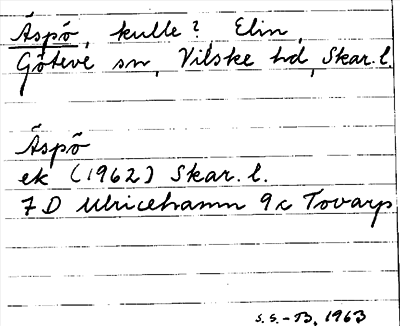 Äspö, kulle? Elin,
Göteve sn, Vilske hd, Skar. l.
Äspö
ek (1962) Skar. l.
7 D Ulricehamn 9c Tovarp
S. S.-B, 1963